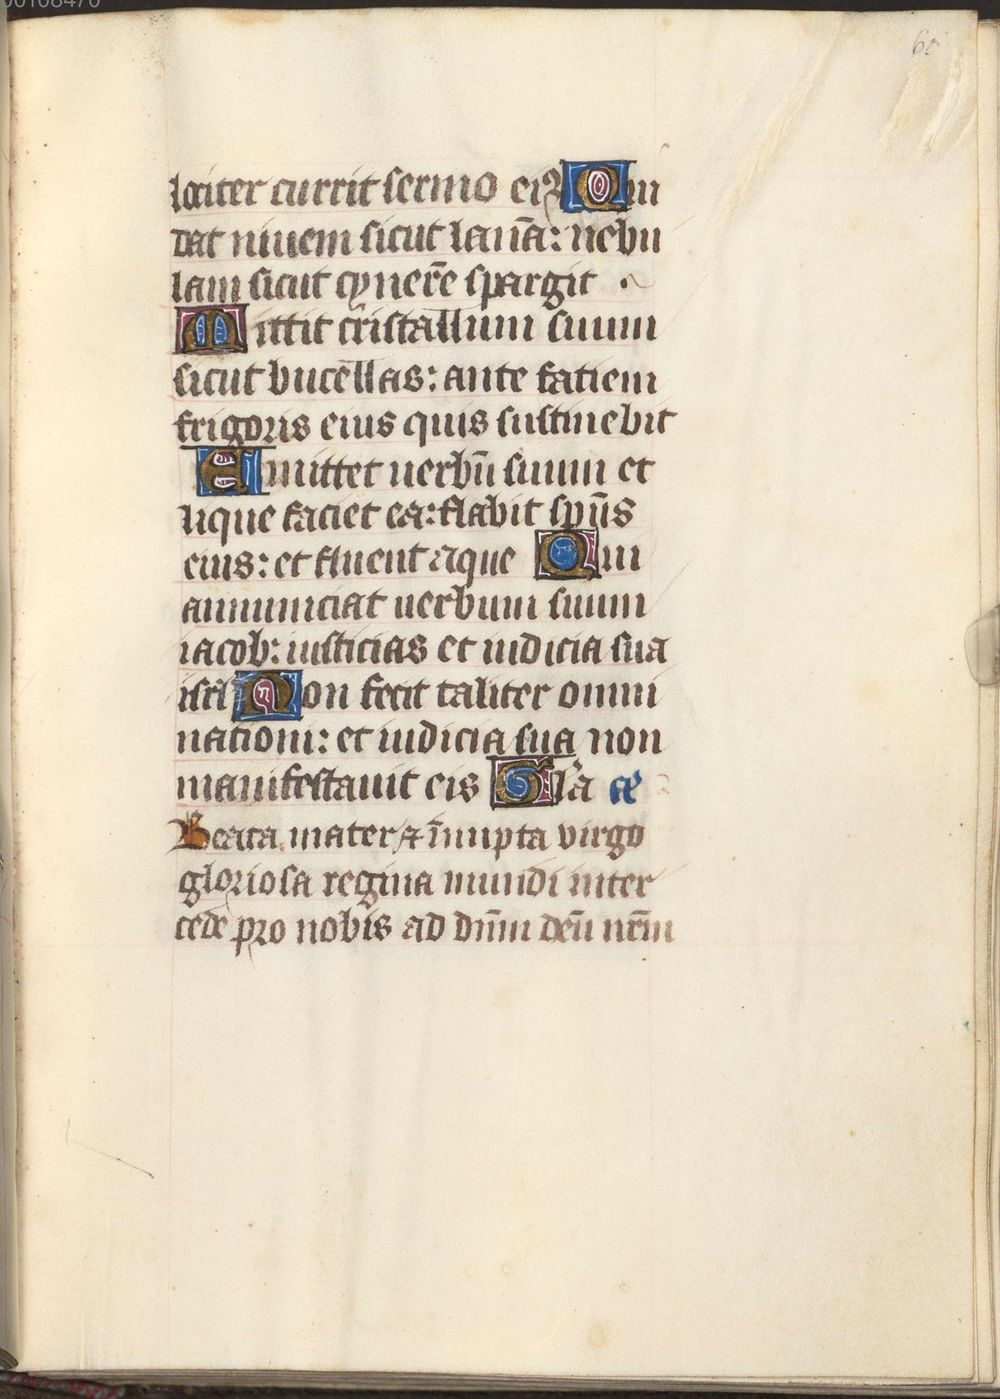 00108470
60
lociter currit sermo ei Qui
dat niuem sicut lanā: nebu
lam sicut cynerē spargit
Mittit cristallum suum
sicut bucellas: ante faciem
frigoris eius quis sustinebit
Emittet uerbū suum et
liquefaciet ea: flabit spūs
eius: et fluent aque Qui
annunciat uerbum suum
iacob: iusticias et iudicia sua
isrl Non fecit taliter omni
nationi: et iudicia sua non
manifestauit eis Glā
Beata mater & īnupta virgo
gloriosa regina mundi inter
cede pro nobis ad dn̄m deū nr̄m